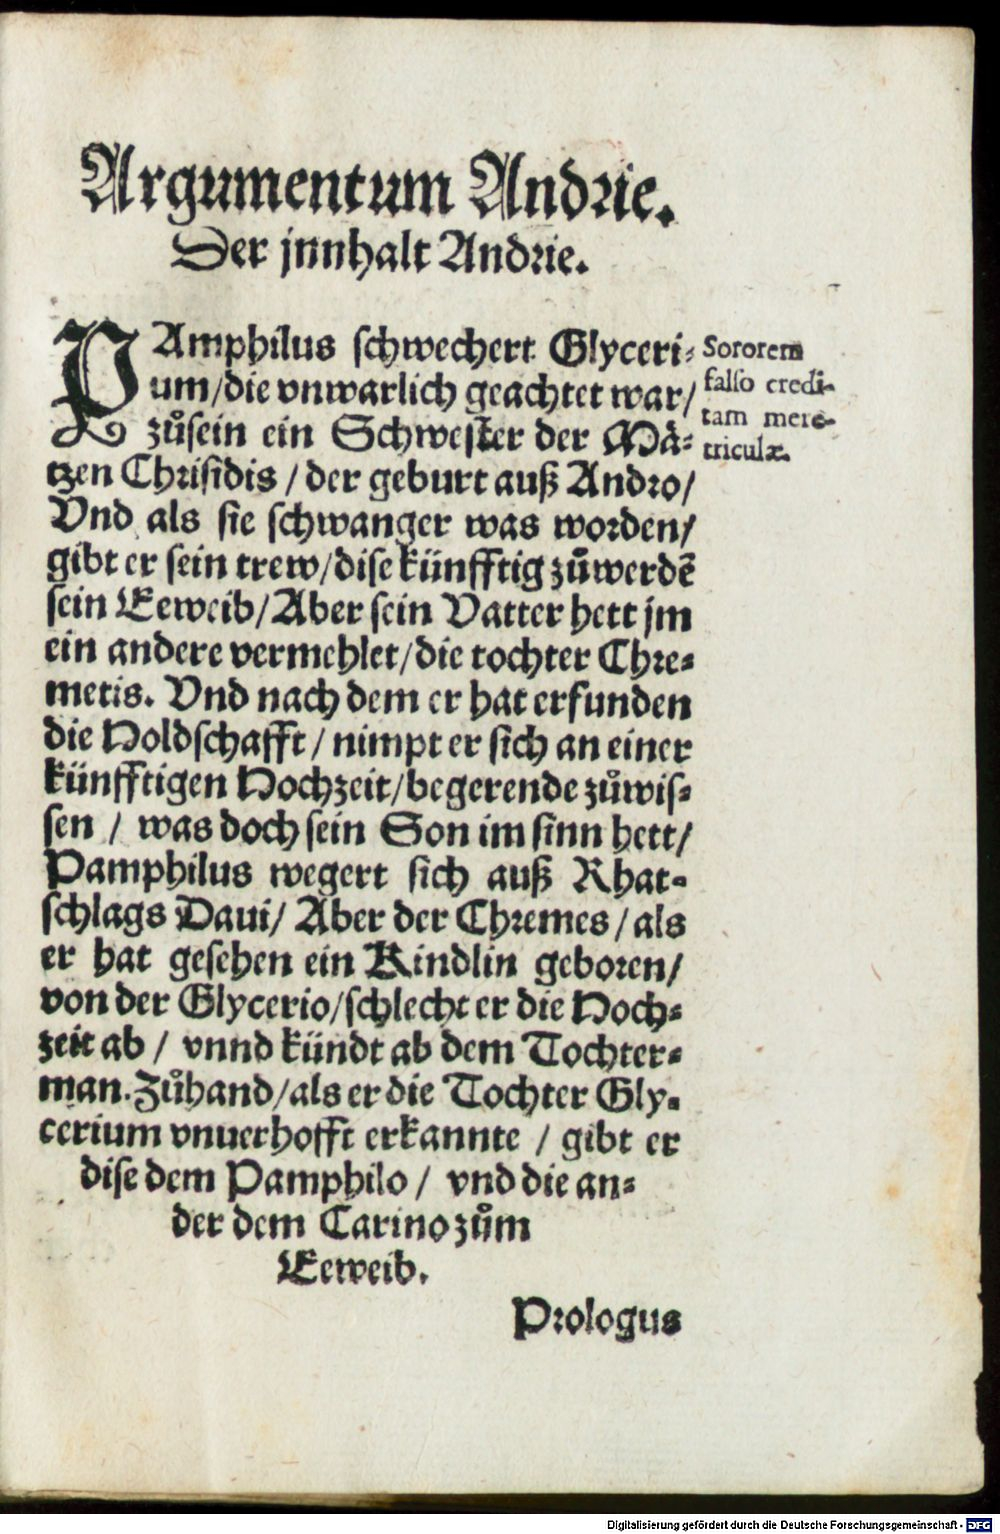 Argumentum Andrie.
Der jnnhalt Andrie.
PAmphilus schwechert Glyceri⸗
um/die vnwarlich geachtet war/
zůsein ein Schwester der Mä⸗
tzen Chrisidis / der geburt auß Andro/
Vnd als sie schwanger was worden/
gibt er sein trew/dise künfftig zůwerdē
sein Eeweib/Aber sein Vatter hett jm
ein andere vermehlet/die tochter Chre⸗
metis. Vnd nach dem er hat erfunden
die Holdschafft / nimpt er sich an einer
künfftigen Hochzeit/begerende zůwis⸗
sen / was doch sein Son im sinn hett/
Pamphilus wegert sich auß Rhat⸗
schlags Daui/ Aber der Chremes / als
er hat gesehen ein Kindlin geboren/
von der Glycerio/schlecht er die Hoch⸗
zeit ab / vnnd kündt ab dem Tochter⸗
man. Zůhand/als er die Tochter Gly⸗
cerium vnuerhofft erkannte / gibt er
dise dem Pamphilo / vnd die an⸗
der dem Carino zům
Eeweib.
Prologus
Sororem
falso credi⸗
tam mere⸗
triculæ.
Digitalisierung gefördert durch die Deutsche Forschungsgemeinschaft - DFG